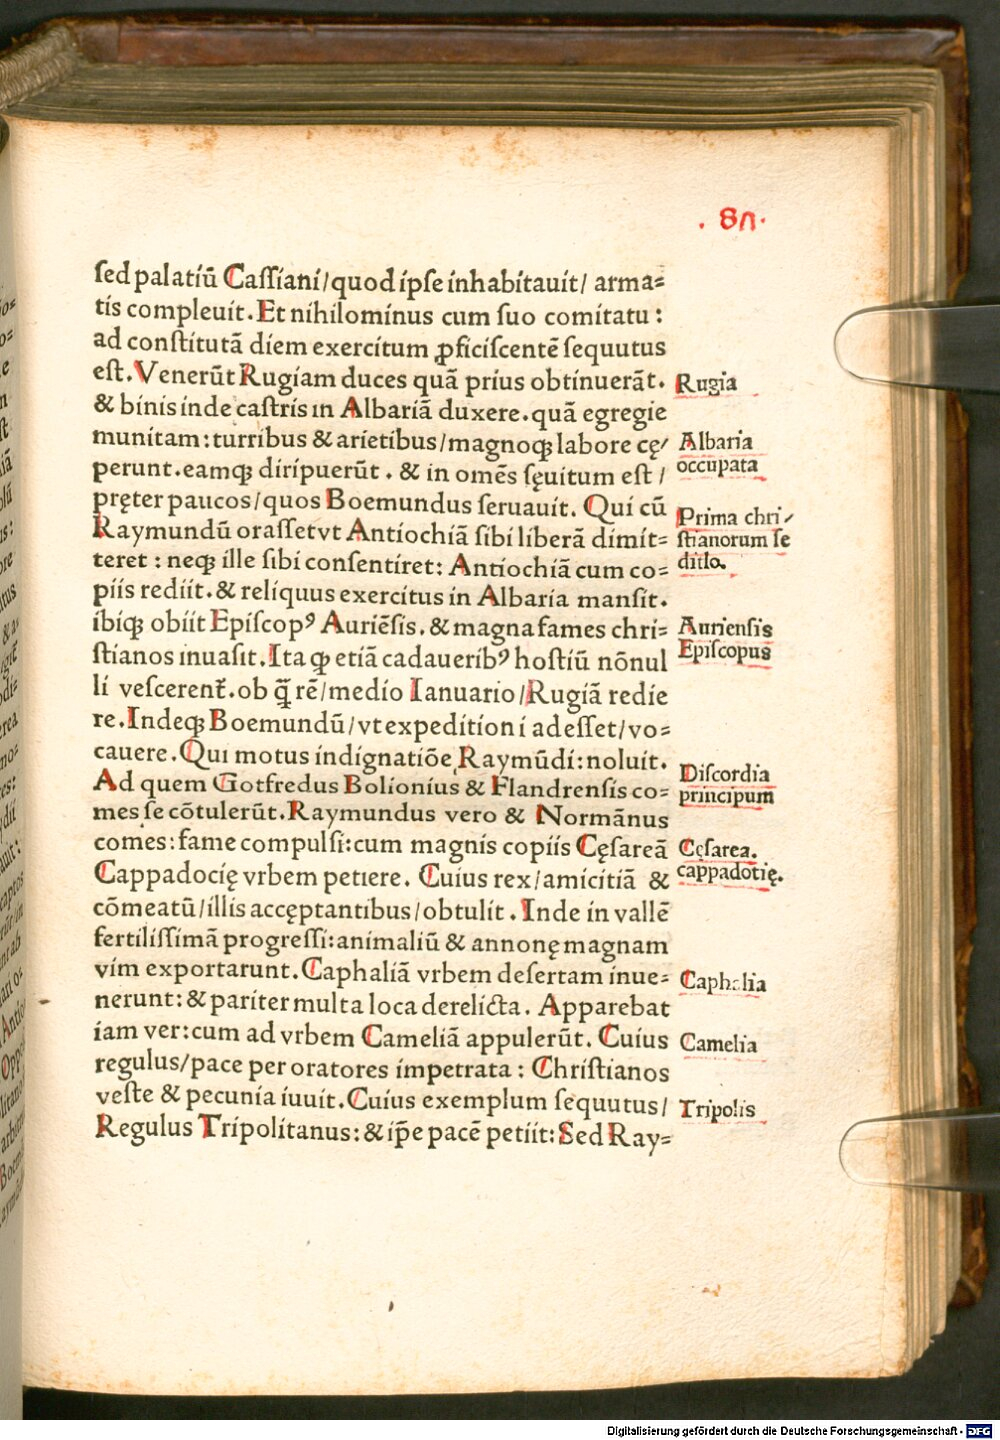 . 87.
sed palatiū Cassiani/quod ipse inhabitauit/ arma=
tis compleuit. Et nihilominus cum suo comitatu :
ad constitutā diem exercitum ꝓficiscentē sequutus
est. Venerūt Rugiam duces quā prius obtinuerāt.
& binis inde castris in Albariā duxere. quā egregie
munitam: turribus & arietibus/magnoqꝫ labore cę/
perunt. eamqꝫ diripuerūt . & in omēs sęuitum est /
pręter paucos/quos Boemundus seruauit. Qui cū
Raymundū orasset vt Antiochiā sibi liberā dimit=
teret : neqꝫ ille sibi consentiret: Antiochiā cum co=
piis rediit. & reliquus exercitus in Albaria mansit.
ibiqꝫ obiit Episcopꝰ Auriēsis. & magna fames chri=
stianos inuasit. Ita ꝙ etiā cadaueribꝰ hostiū nōnul
li vescerent̄. ob q̄ rē/medio Ianuario/Rugiā redie
re. Indeqꝫ Boemundū/vt expeditioni adesset/vo=
cauere. Qui motus indignatiōe Raymūdi: noluit.
Ad quem Gotfredus Bolionius & Flandrensis co=
mes se cōtulerūt. Raymundus vero & Normānus
comes: fame compulsi: cum magnis copiis Cęsareā
Cappadocię vrbem petiere. Cuius rex/amicitiā &
cōmeatū/illis accęptantibus/obtulit. Inde in vallē
fertilissimā progressi: animaliū & annonę magnam
vim exportarunt. Caphaliā vrbem desertam inue=
nerunt: & pariter multa loca derelicta. Apparebat
iam ver: cum ad vrbem Cameliā appulerūt. Cuius
regulus/pace per oratores impetrata : Christianos
veste & pecunia iuuit. Cuius exemplum sequutus/
Regulus Tripolitanus: & ip̄e pacē petiit: Sed Ray=
Rugia
Albaria
occupata
Prima chri/
stianorum se
ditio.
Auriensis
Episcopus
Discordia
principum
Cęsarea.
cappadotię.
Caphalia
Camelia
Tripolis
Digitalisierung gefördert durch die Deutsche Forschungsgemeinschaft - DFG